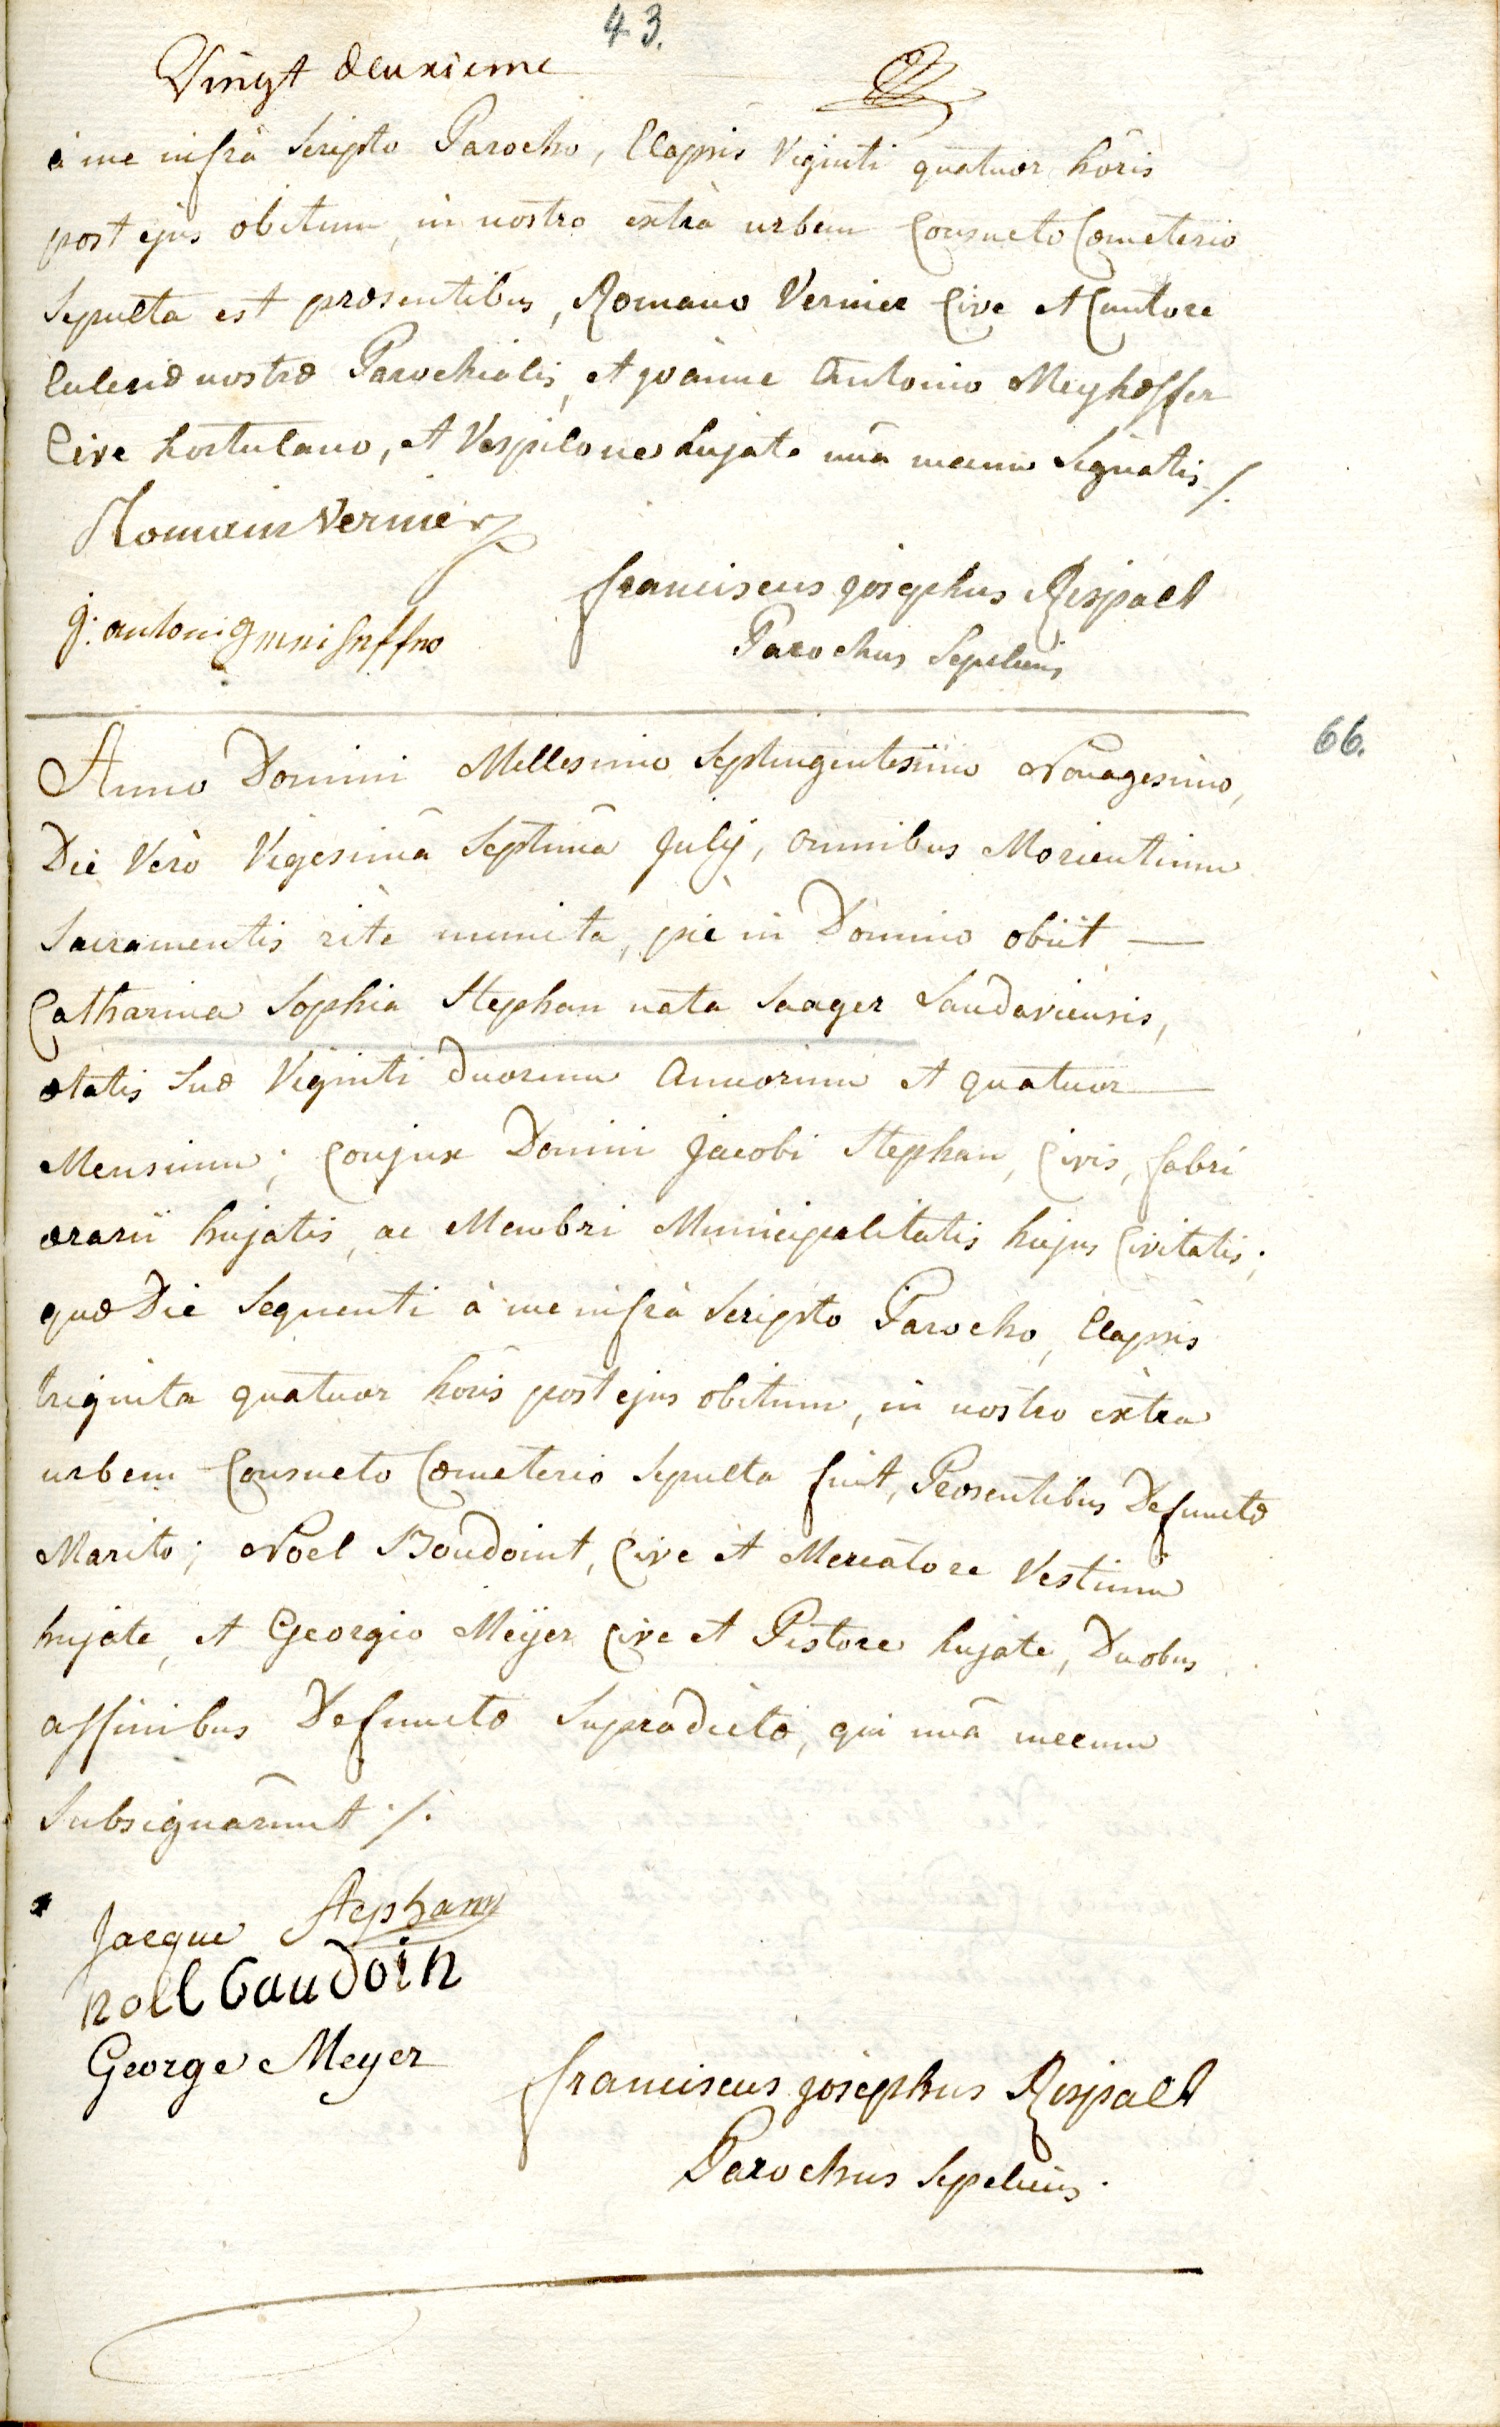 43.
Vingt deuxieme
à me infrà Scripto Parocho, Elapsis Viginti quatuor horis
post ejus obitum, in nostro extrà urbem Consueto Cœmeterio
Sepulta est præsentibus, Romano Vernier Cive et Cantore
Ecclesiæ nostræ Parochialis, et joänne Antonio Meyhœffer
Cive hortulano, et Vespilone hujate unà mecum Signatis ./.
Romain Vernier
franciscus josephus Rispalt
j: antoni
Parochus Sepeliens
66.
Anno Domini Millesimo Septingentesimo Nonagesimo,
Die Verò Vigesimâ Septimâ Julij, omnibus Morientium
Sacramentis ritè munita, piè in Domino obiit —
Catharina Sophia Stephan nata Saager Landaviensis,
ætatis Suæ Viginti duorum Annorum et quatuor —
Mensium; Conjux Domini Jacobi Stephan, Civis, fabri
ærarii hujatis, ac Membri Municipalitatis hujus Civitatis;
quæ Die Sequenti à me infrà Scripto Parocho, Elapsis
triginta quatuor horis post ejus obitum, in nostro extra
urbem Consueto Cœmeterio Sepulta fuit, Præsentibus Defunctæ
Marito; Noel Boudoint, Cive et Mercatore Vestium
hujate, et Georgio Meÿer Cive et Pistore hujate, Duobus
affinibus Defunctæ Supradictæ, qui unâ mecum
Subsignârunt ./.
Jacque Stephann
noel baudoin
George Meyer
franciscus josephus Rispalt
Parochus Sepeliens.